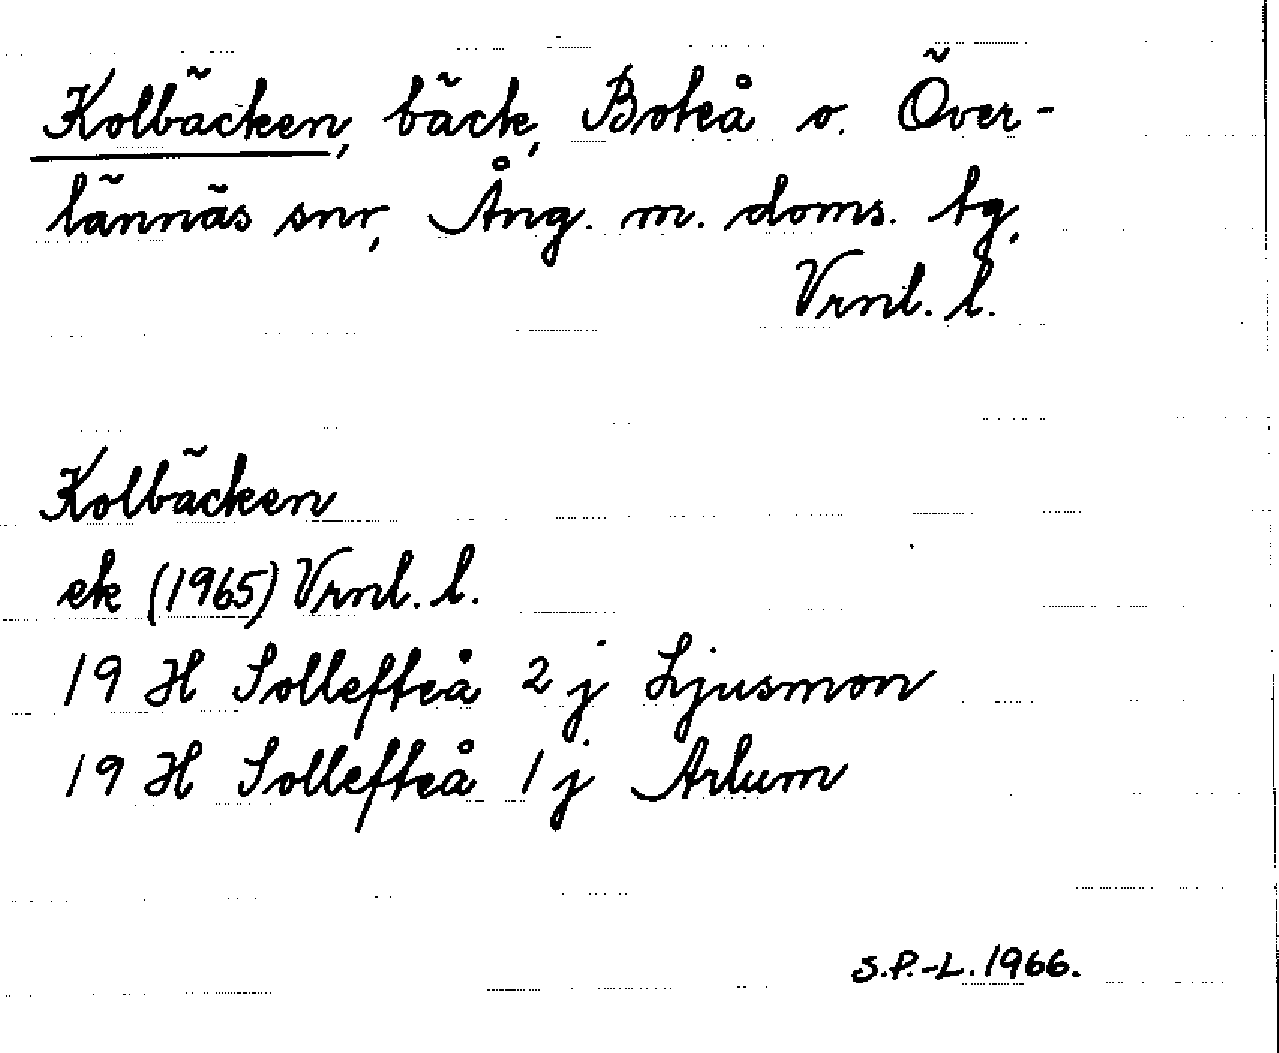 Kolbäcken, bäck, Boteå o. Över-
lännäs snr, Ång. m. doms. tg,
Vrml. l.
Kolbäcken
ek (1965) Vrml. l.
19 H Sollefteå 2 j Ljusmon
19 H Sollefteå 1 j Arlum
S.P.-L. 1966.